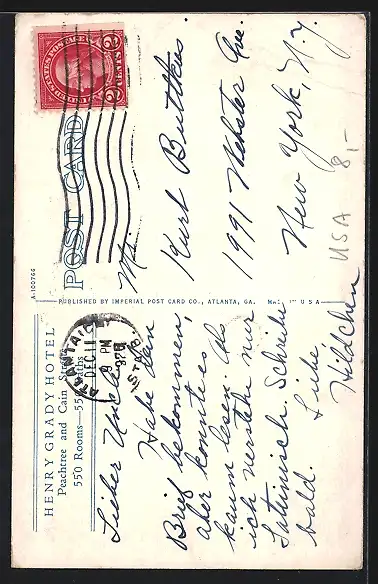 HENRY GRADY HOTEL
Peachtree and Cain Streets
550 Rooms—550 Baths
Lieber Uncle
Habe den
Brief bekommen,
aber konnte es
kaum lesen. Als
ich verstehe nur
Latinisch. Schreibe
bald. Liebe
Hildchen
A-100766
PUBLISHED BY IMPERIAL POST CARD CO., ATLANTA, GA. MADE IN U S A
POST CARD
UNITED STATES POSTAGE
2 CENTS 2
ATLANTA
DEC 11
9 PM
Mr.
Kurt Buttkus.
1991 Webster Ave.
New York, N.Y.
USA 8,-